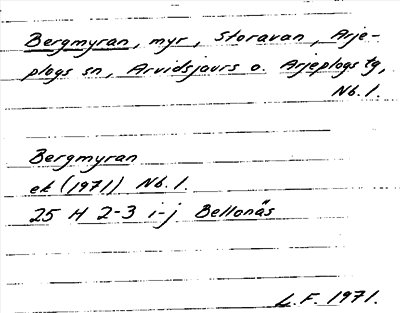 Bergmyran, myr, Storavan, Arje-
plogs sn, Arvidsjaurs o. Arjeplogs tg,
Nb. l.
Bergmyran
ek (1971) Nb. l.
25 H 2-3 i-j Bellonäs
L.F. 1971.